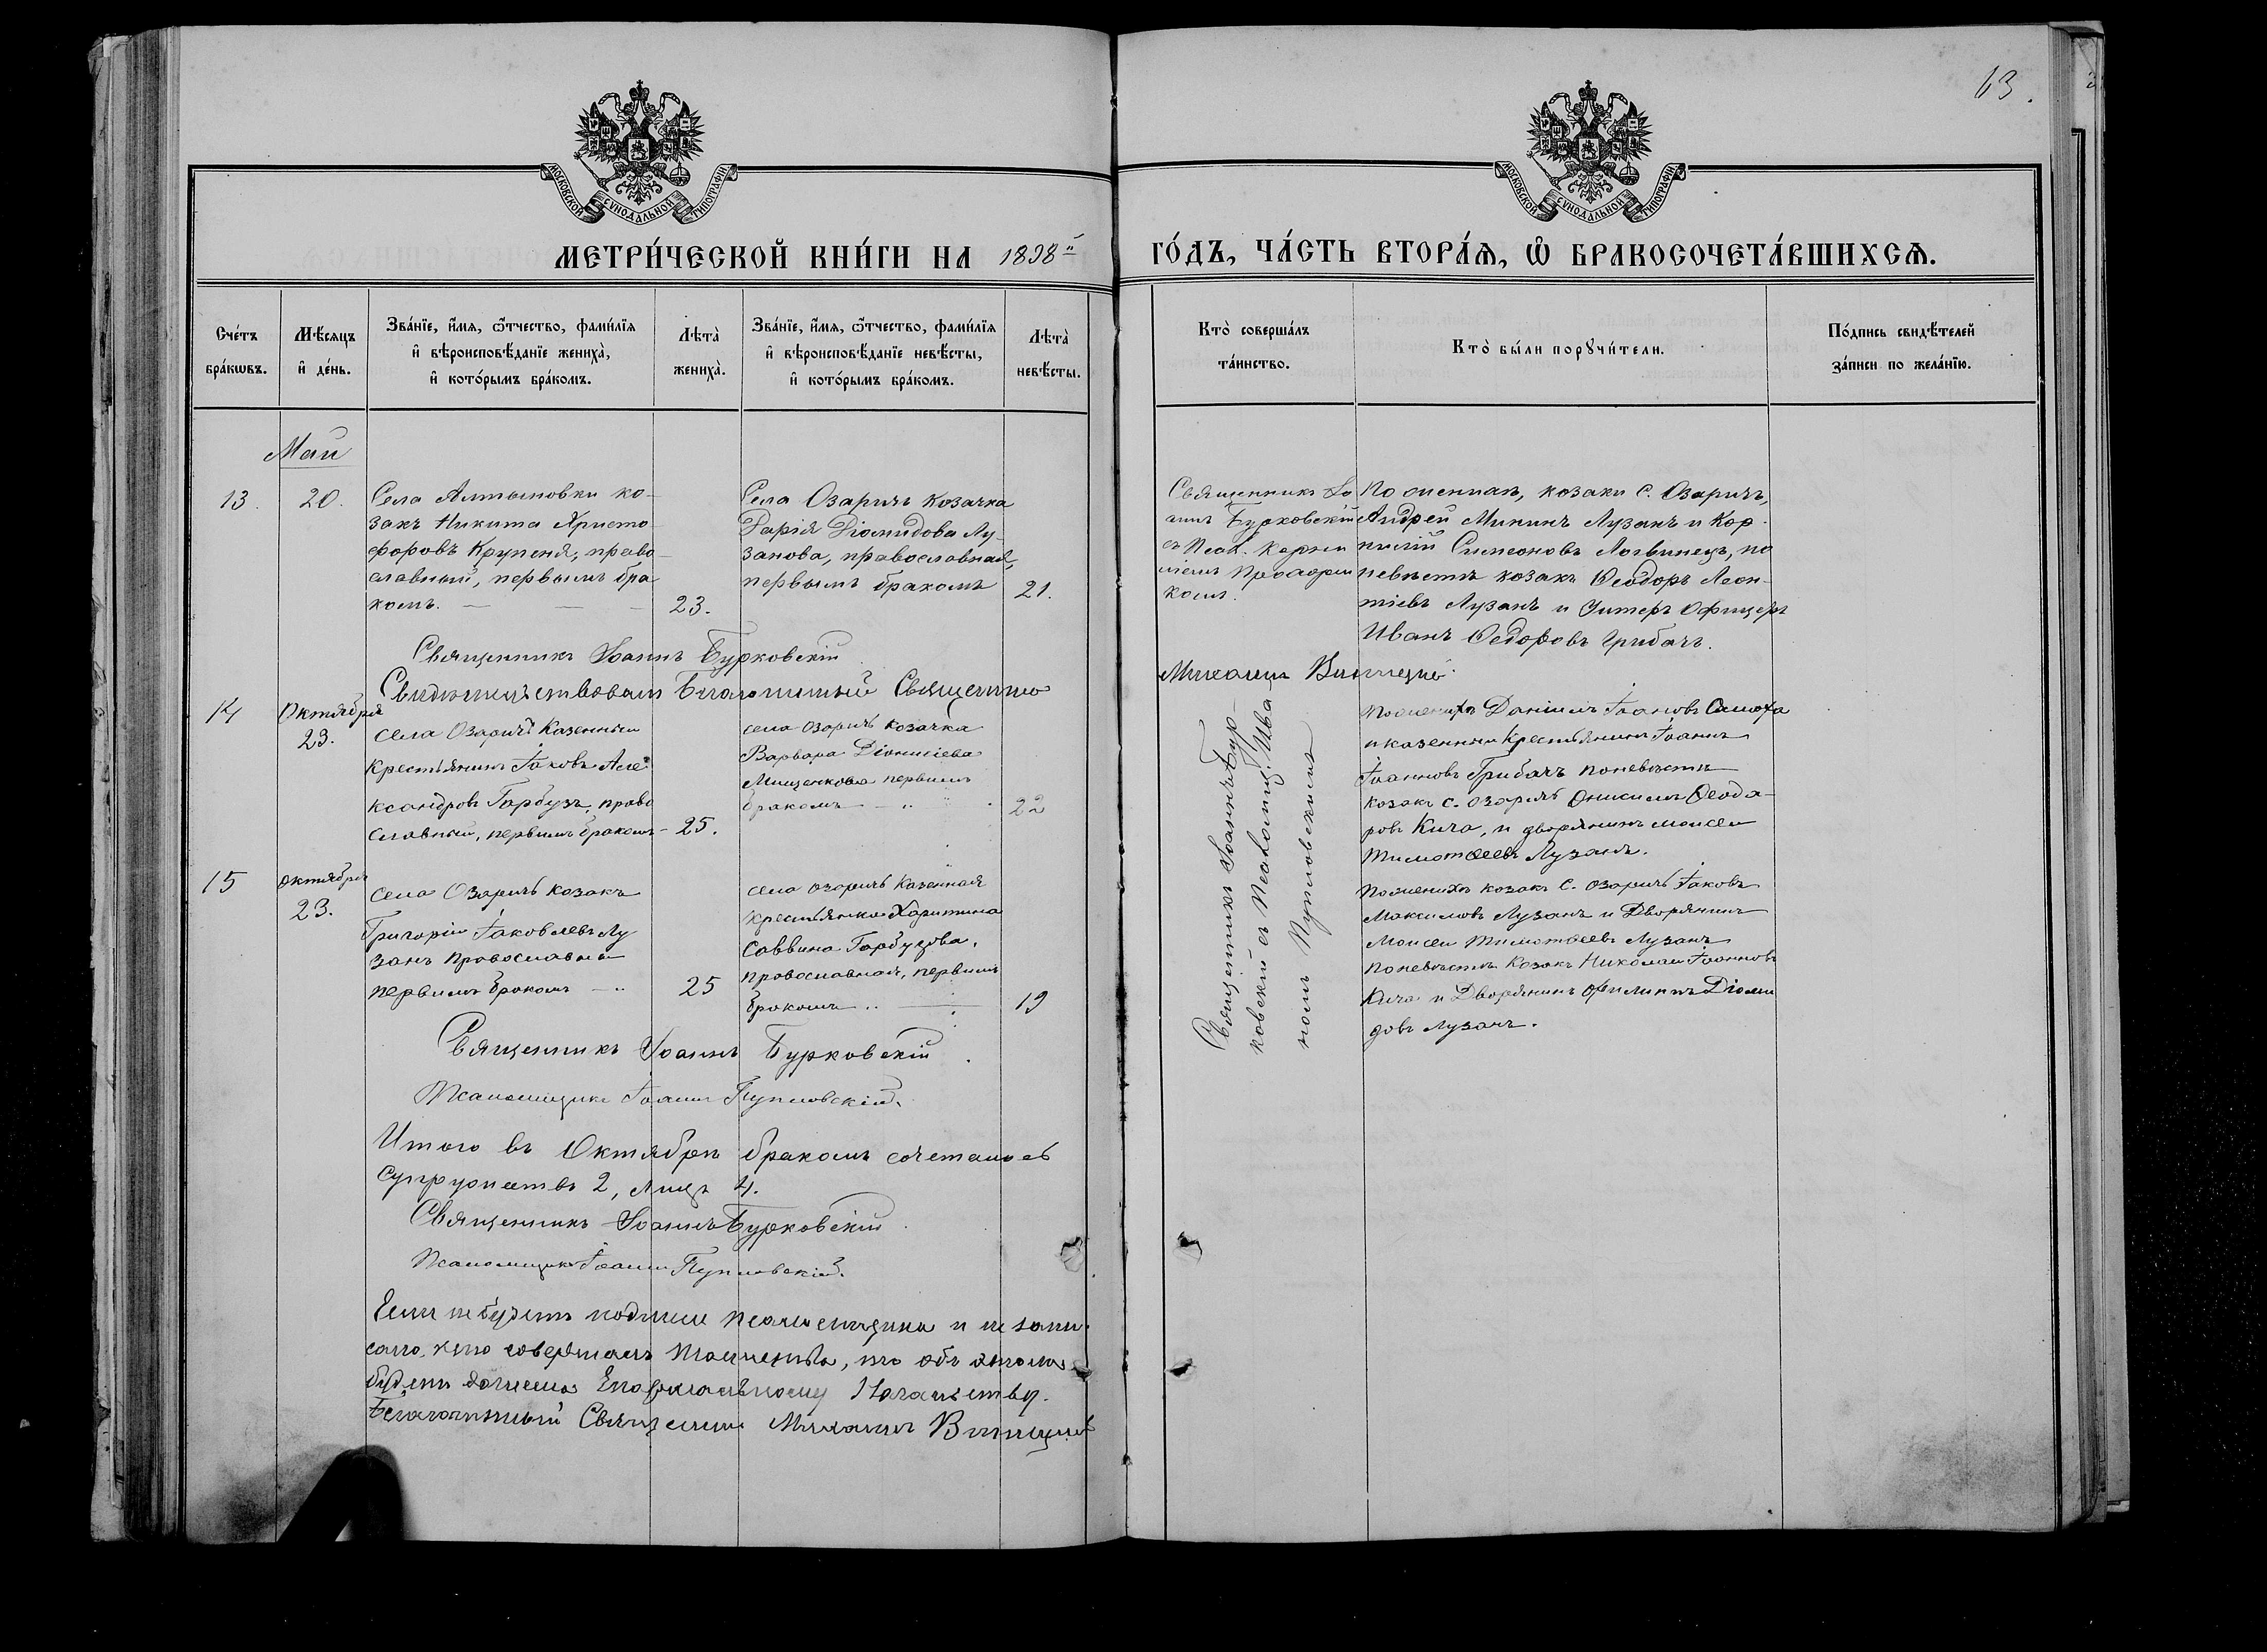 13.
МОСКОВСКОЙ СУНОДАЛЬНОЙ ТИПОГРАФІИ
МОСКОВСКОЙ СУНОДАЛЬНОЙ ТИПОГРАФІИ
МЕТРИ́ЧЕСКОЙ КНИ́ГИ НА 1898й
ГО́ДЪ, ЧА́СТЬ ВТОРА́Я, Ѡ҆ БРАКОСОЧЕТА́ВШИХСѦ.
Сче́тъ бра́кѡвъ.
Мѣ́сяцъ и҆ де́нь.
Зва́нїе, и҆́мя, ѻ҆́тчество, фами́лїя
и҆ вѣроисповѣ́данїе жениха̀,
и҆ кото́рымъ бра́комъ.
Лѣта̀ жениха̀.
Зва́нїе, и҆́мя, ѻ҆́тчество, фами́лїя
и҆ вѣроисповѣ́данїе невѣ́сты,
и҆ кото́рымъ бра́комъ.
Лѣта̀ невѣ́сты.
Кто̀ соверша́лъ та́инство.
Кто̀ бы́ли порꙋчи́тели.
По́дпись свидѣ́телей
за́писи по жела́нїю.
Май
13.
20.
Села Алтыновки ко-
закъ Никита Христо-
форовъ Крупеня, право-
славный, первымъ бра
комъ.
23.
Села Озаричъ козачка
Дарія Діомидова Лу-
занова, православная,
первымъ бракомъ
21.
Священникъ Іо
аннъ Бурковскій
съ Псал.
комъ.
По женихѣ, козаки с. Озаричъ,
Андрей Мининъ Лузанъ и Кор-
нилій Симеоновъ Логвинецъ, по
невѣстѣ козакъ Ѳеодоръ Леон-
тіевъ Лузанъ и Унтеръ Офицеръ
Иванъ Ѳедоровъ Грибачъ.
Священникъ Іоаннъ Бурковскій
Свидѣтельствовалъ Благочинный Священникъ
Михаилъ
14
Октября
23.
села Озаричъ Казенный
Крестьянинъ Іаковъ Але-
ксандровъ Гарбузъ, право
славный, первымъ бракомъ
25.
села Озаричъ козачка
Варвара Діонисіева
Мищенкова первымъ
бракомъ
22
Священникъ Іоаннъ Бур-
ковскій съ Псаломщ. Ива
номъ Пупловскимъ
По женихѣ Даніилъ Іоановъ
и казенный Крестьянинъ Іоаннъ
Іоанновъ Грибачъ по невѣстѣ
козакъ с. Озаричъ Онисимъ Ѳеодо-
ровъ Кича, и дворянинъ Моисей
Тимоѳеевъ Лузанъ.
15
Октября
23.
села Озаричъ козакъ
Григорій Іаковлевъ Лу
занъ православный
первымъ бракомъ
25
села Озаричъ Казенная
крестьянка Харитина
Саввина Гарбузова,
православная, первымъ
бракомъ
19
По женихѣ козакъ С. Озаричъ Іаковъ
Максимовъ Лузанъ и Дворянинъ
Моисей Тимоѳеевъ Лузанъ
по невѣстѣ Козакъ Николай Іоанновъ
Кича и Дворянинъ Филиппъ Діоми
довъ Лузанъ.
Священникъ Іоаннъ Бурковскій
Псаломщикъ Іоаннъ Пупловскій.
Итого въ Октябрѣ бракомъ сочеталось
супружествъ 2, лицъ 4.
Священникъ Іоаннъ Бурковскій
Псаломщикъ Іоаннъ Пупловскій.
Если не будетъ подписи псаломщика и не запи-
сано, кто совершалъ таинства, то объ этомъ
будетъ донесено Епархіальному Начальству.
Благочинный Священникъ Михаилъ